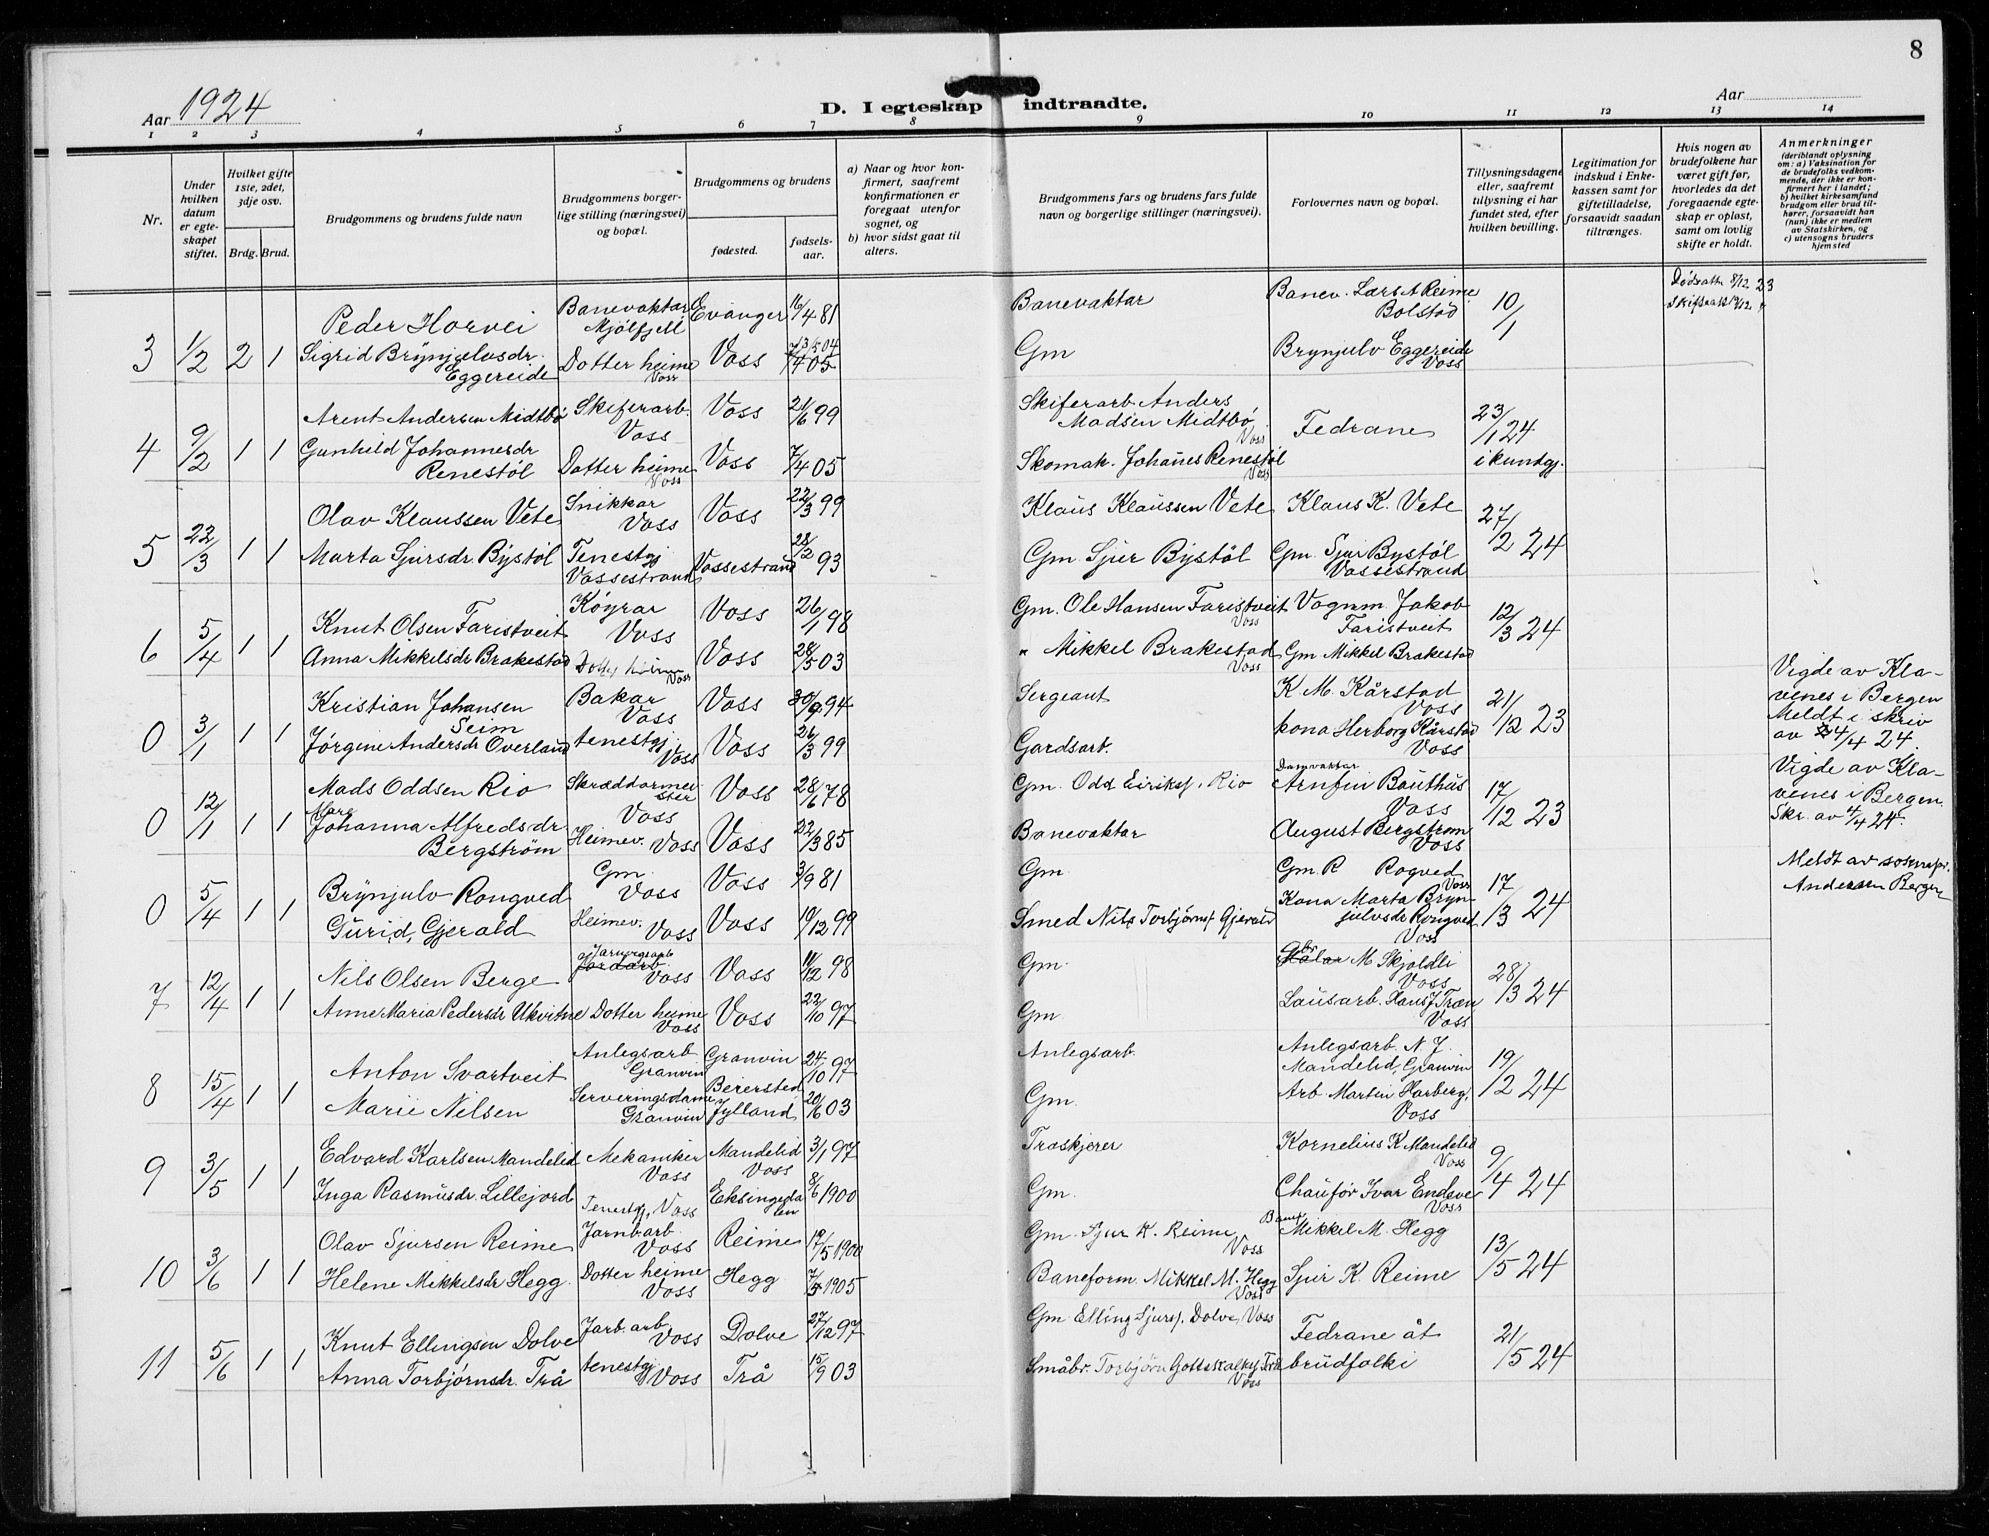 8
Aar 1924
D. I egteskap indtraadte.
Aar
1 2 3 4 5 6 7 8 9 10 11 12 13 14
Nr.
Under hvilken datum er egteskapet stiftet.
Hvilket gifte 1ste, 2det, 3dje osv.
Brdg. Brud.
Brudgommens og brudens fulde navn
Brudgommens borgerlige stilling (næringsvei) og bopæl.
Brudgommens og brudens
fødested.
fødselsaar.
a) Naar og hvor konfirmert, saafremt konfirmationen er foregaat utenfor sognet, og
b) hvor sidst gaat til alters.
Brudgommens fars og brudens fars fulde navn og borgerlige stillinger (næringsvei).
Forlovernes navn og bopæl.
Tillysningsdagene eller, saafremt tillysning ei har fundet sted, efter hvilken bevilling.
Legitimation for indskud i Enkekassen samt for giftetilladelse, forsaavidt saadan tiltrænges.
Hvis nogen av brudefolkene har været gift før, hvorledes da det foregaaende egteskap er opløst, samt om lovlig skifte er holdt.
Anmerkninger
(deriblandt oplysning om: a) Vaksination for de brudefolks vedkommende, der ikke er konfirmert her i landet; b) hvilket kirkesamfund brudgom eller brud tilhører, forsaavidt han (hun) ikke er medlem av Statskirken, og c) utensogns bruders hjemsted
Peder Horvei Banevaktar Mjölfjell Evanger 16/4 81 Banevaktar Banev. Lars A Reime Bolstad 10/1 Dødsatt. 8/12 23
3 1/2 2 1 Sigrid Brynjulvsdr. Eggereide Dotter heime Voss Voss 7/4 05 Gm Brynjulv Eggereide Voss
Arent Andersen Midtbø Skiferarb. Voss Voss 21/6 99 Skiferarb Anders Madsen Midtbø Voss Fedrane 23/1 24
4 9/2 1 1 Gunhild Johannesdr Renestøl Dotter heime Voss Voss 7/4 05 Skomak. Johanes Renestøl Voss i kundgj.
Olav Klaussen Vete Snikkar Voss Voss 22/3 99 Klaus Klaussen Vete Klaus K. Vete 27/2 24
5 22/3 1 1 Marta Sjursdr. Bystøl Tenestgj Vossestrand Vossestrand 28/2 93 Gm Sjur Bystøl Gm. Sjur Bystøl Vossestrand
Knut Olsen Faristveit Köyrar Voss Voss 26/1 98 Gm. Ole Hansen Faristveit Voss Vognm. Jakob Faristveit 12/3 24
6 5/4 1 1 Anna Mikkelsdr Brakestad Dotter heime Voss Voss 28/5 03 " Mikkel Brakestad Voss Gm Mikkel Brakestad
Kristian Johansen Seim Bakar Voss Voss 30/9 94 Sergeant K. M. Kårstad Voss 21/12 23 Vigde av Klavenes i Bergen Meldt i skriv av 4/4 24.
0 3/1 1 1 Jørgine Andersdr Overland tenestgj. Voss Voss 26/3 99 Gardsarb. kona Herborg Kårstad Voss
Mads Oddsen Rio Skræddarmeister Voss Voss 28/6 78 Gm. Odd Eiriksf. Rio Damvaktar Arnfin Bauthus Voss 17/12 23 Vigde av Klavenes i Bergen. Skr. av 4/4 24.
0 12/1 1 1 Johanna Alfredsdr Bergstrøm Heimev. Voss Voss 22/3 85 Banevaktar August Bergstrøm Voss
Brynjulv Rongved Gm. Voss Voss 3/9 81 Gm Gm. R Rogved Voss 17/3 24 Meldt av soknepr. Andersen Bergen
0 5/4 1 1 Gurid Gjerald Heimev. Voss Voss 19/12 99 Smed Nils Torbjørnsf Gjerald Kona Marta Brynjulvsdr Rongved Voss
Nils Olsen Berge Voss Voss 11/12 98 Gm. M Skjoldli Voss 28/3 24
7 12/4 1 1 Anne Maria Pedersdr Ukvitne Dotter heime Voss Voss 22/10 97 Gm Lausarb. Hans J Træn Voss
Anton Svartveit Anlegsarb Granvin Granvin 24/10 97 Anlegsarb. Anlegsarb. N. J. Mandelid, Granvin 19/12 24
8 15/4 1 1 Marie Nelsen Serveringsdame Granvin Beiersted Jylland 20/6 03 Gm. Arb Martin Harberg, Voss
Edvard Karlsen Mandelid Mekaniker Voss Mandelid Voss 3/1 97 Træskjerer Kornelius K Mandelid Voss 9/4 24
9 3/5 1 1 Inga Rasmusdr. Lillejord Tenestgj, Voss Eksingedalen 8/6 1900 Gm. Chaufør Ivar Endeve Voss
Olav Sjursen Reime Jarnbarb Voss Reime 19/5 1900 Gm. Sjur K. Reime Voss Mikkel M. Hegg 13/5 24
10 3/6 1 1 Helene Mikkelsdr Hegg. Dotter heime Voss Hegg 7/5 1905 Baneform. Mikkel M. Hegg Voss Sjur K. Reime
Knut Ellingsen Dolve Jarb. arb Voss Dolve 27/12 97 Gm Elling Sjursf. Dolve, Voss Fedrane åt 21/5 24
11 5/6 1 1 Anna Torbjørnsdr. Trå tenestgj Voss Trå 15/9 03 Småbr. Torbjørn Gottskalksf Trå Voss brudfolki